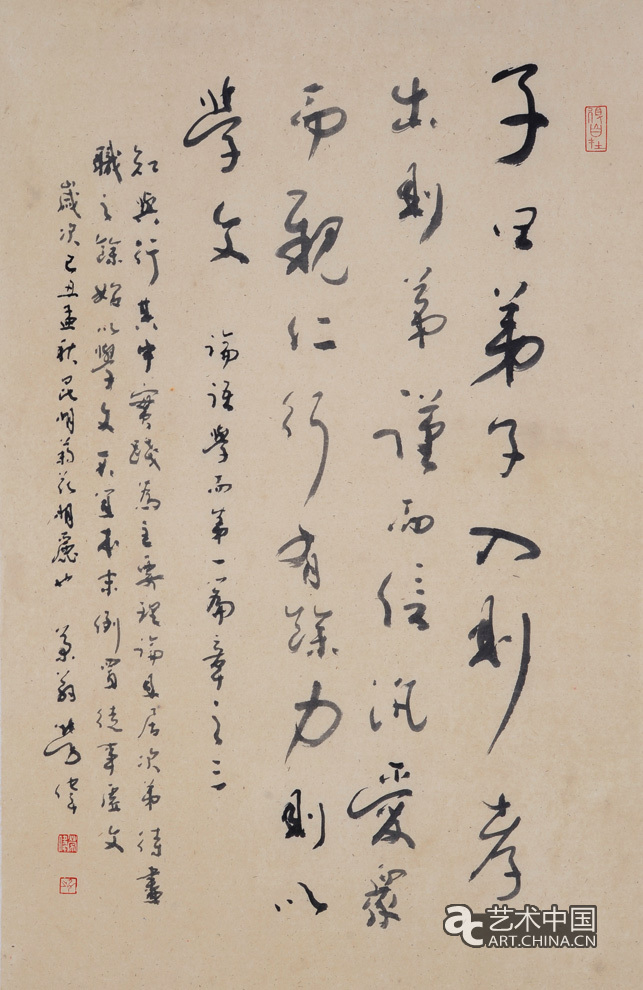 子曰弟子入則孝
出則弟謹而信汎愛眾
而親仁行有餘力則以
學文
論語學而第一篇章之三
知與行其中實踐為主要理論且居次第待盡
職之餘始以學文本末倒置徒事虛文
歲次己丑孟秋昆明菊花明麗也 勞偉
ac 艺术中国
ART.CHINA.CN